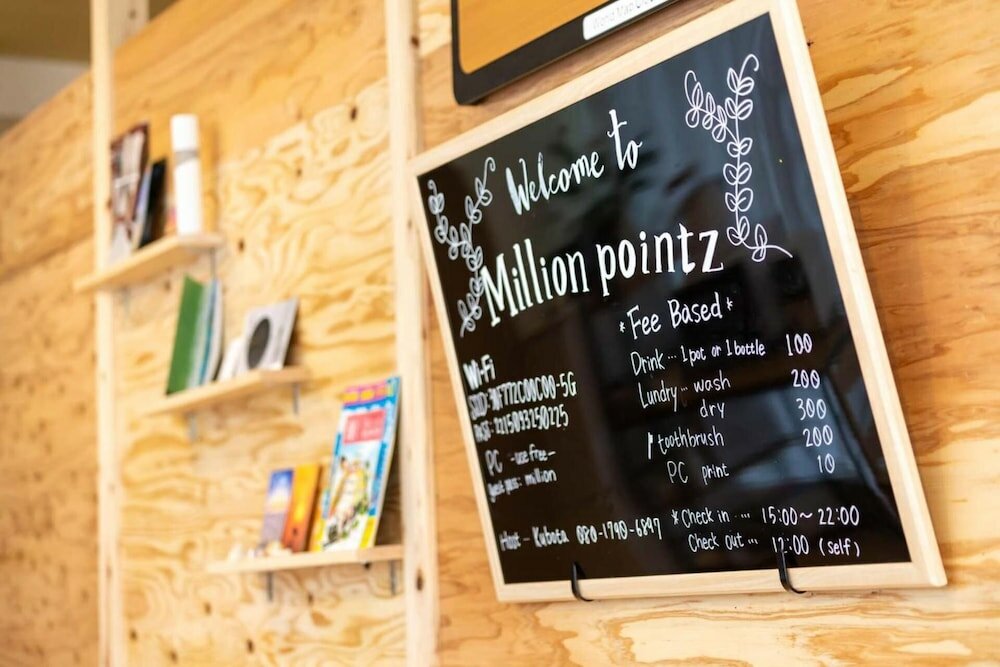 Welcome to
Million pointz
*Fee Based*
Drink ... 1 pot or 1 bottle 100
Lundry ... wash 200
dry 300
toothbrush 200
PC print 10
Wi-Fi
PC -use free-
Guest pass: million
Host - Kubota 080-1790-6897
*Check in ... 15:00~22:00
Check out ... 12:00 (self)